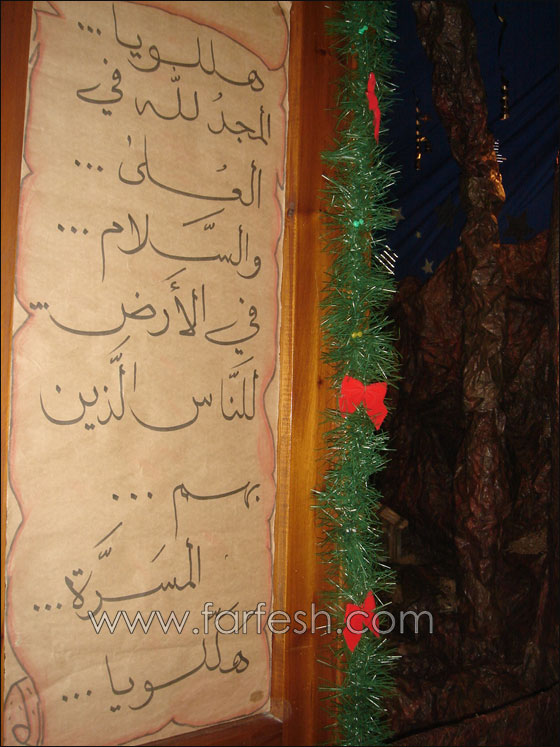 هللويا...
ألمجدُ للّه في
ألعُلىٰ...
والسَّلام...
في الأَرض...
للنَّاس الَّذين
بهم...
ألمسَرَّة...
هلَّلويا...
www.farfesh.com